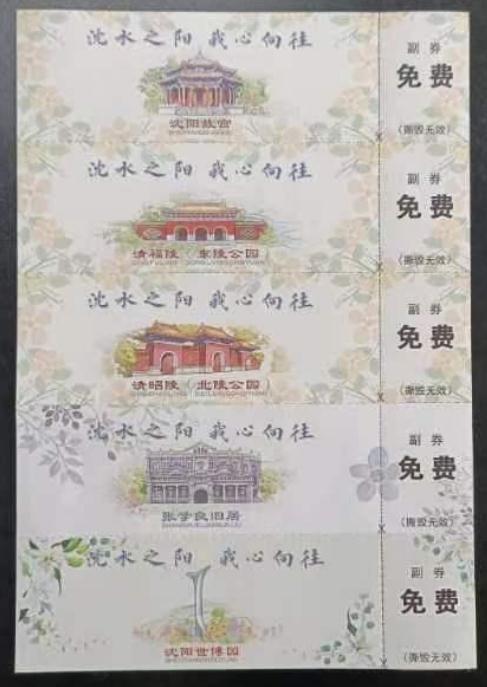 沈水之阳 我心向往
沈阳故宫
副 券
免费
（撕毁无效）
沈水之阳 我心向往
清福陵（东陵公园）
副 券
免费
（撕毁无效）
沈水之阳 我心向往
清昭陵（北陵公园）
副 券
免费
（撕毁无效）
沈水之阳 我心向往
张学良旧居
副 券
免费
（撕毁无效）
沈水之阳 我心向往
沈阳世博园
副 券
免费
（撕毁无效）